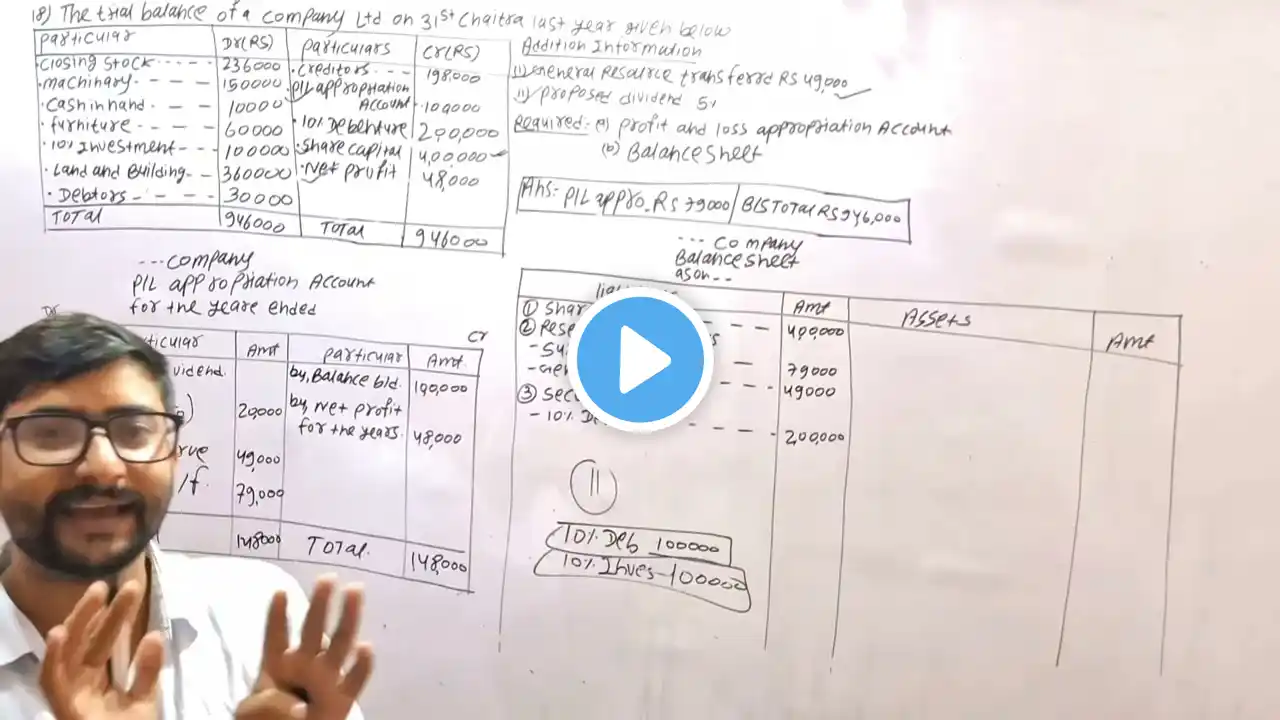 18) The trial balance of a company Ltd on 31st Chaitra last year given below
Particular Dr(RS) Particulars Cr(RS)
Closing Stock 236000 Creditors 198,000
machinary 150000 P/L appropriation
Cash in hand 10000 Account 100000
furniture 60000 10% Debenture 200,000
10% Investment 100000 Share capital 4,00,000
Land and Building 360000 Net profit 48,000
Debtors 30000
TOTAL 946000 TOTAL 946000
Addition Information
i) General Resource transferrd RS 49,000
ii) proposed dividend 5%
Required:- a) profit and loss appropriation Account
(b) Balance Sheet
Ans:- P/L appro. Rs 79000 B/S TOTAL RS 946,000
---company
P/L appropriation Account
for the yeare ended
Dr Cr
Amt particular Amt
vidend. by, Balance b/d. 100,000
20,000 by, Net profit
for the years. 48,000
rve 49,000
/f. 79,000
148000 TOTAL. 148,000
--- Company
Balance sheet
as on --
Amt Assets Amt
① Shar 400,000
② Rese
- Su 79000
- Gene 49000
③ Secu
- 10% D 2,00,000
11
10% Deb 100000
10% Inves - 100000